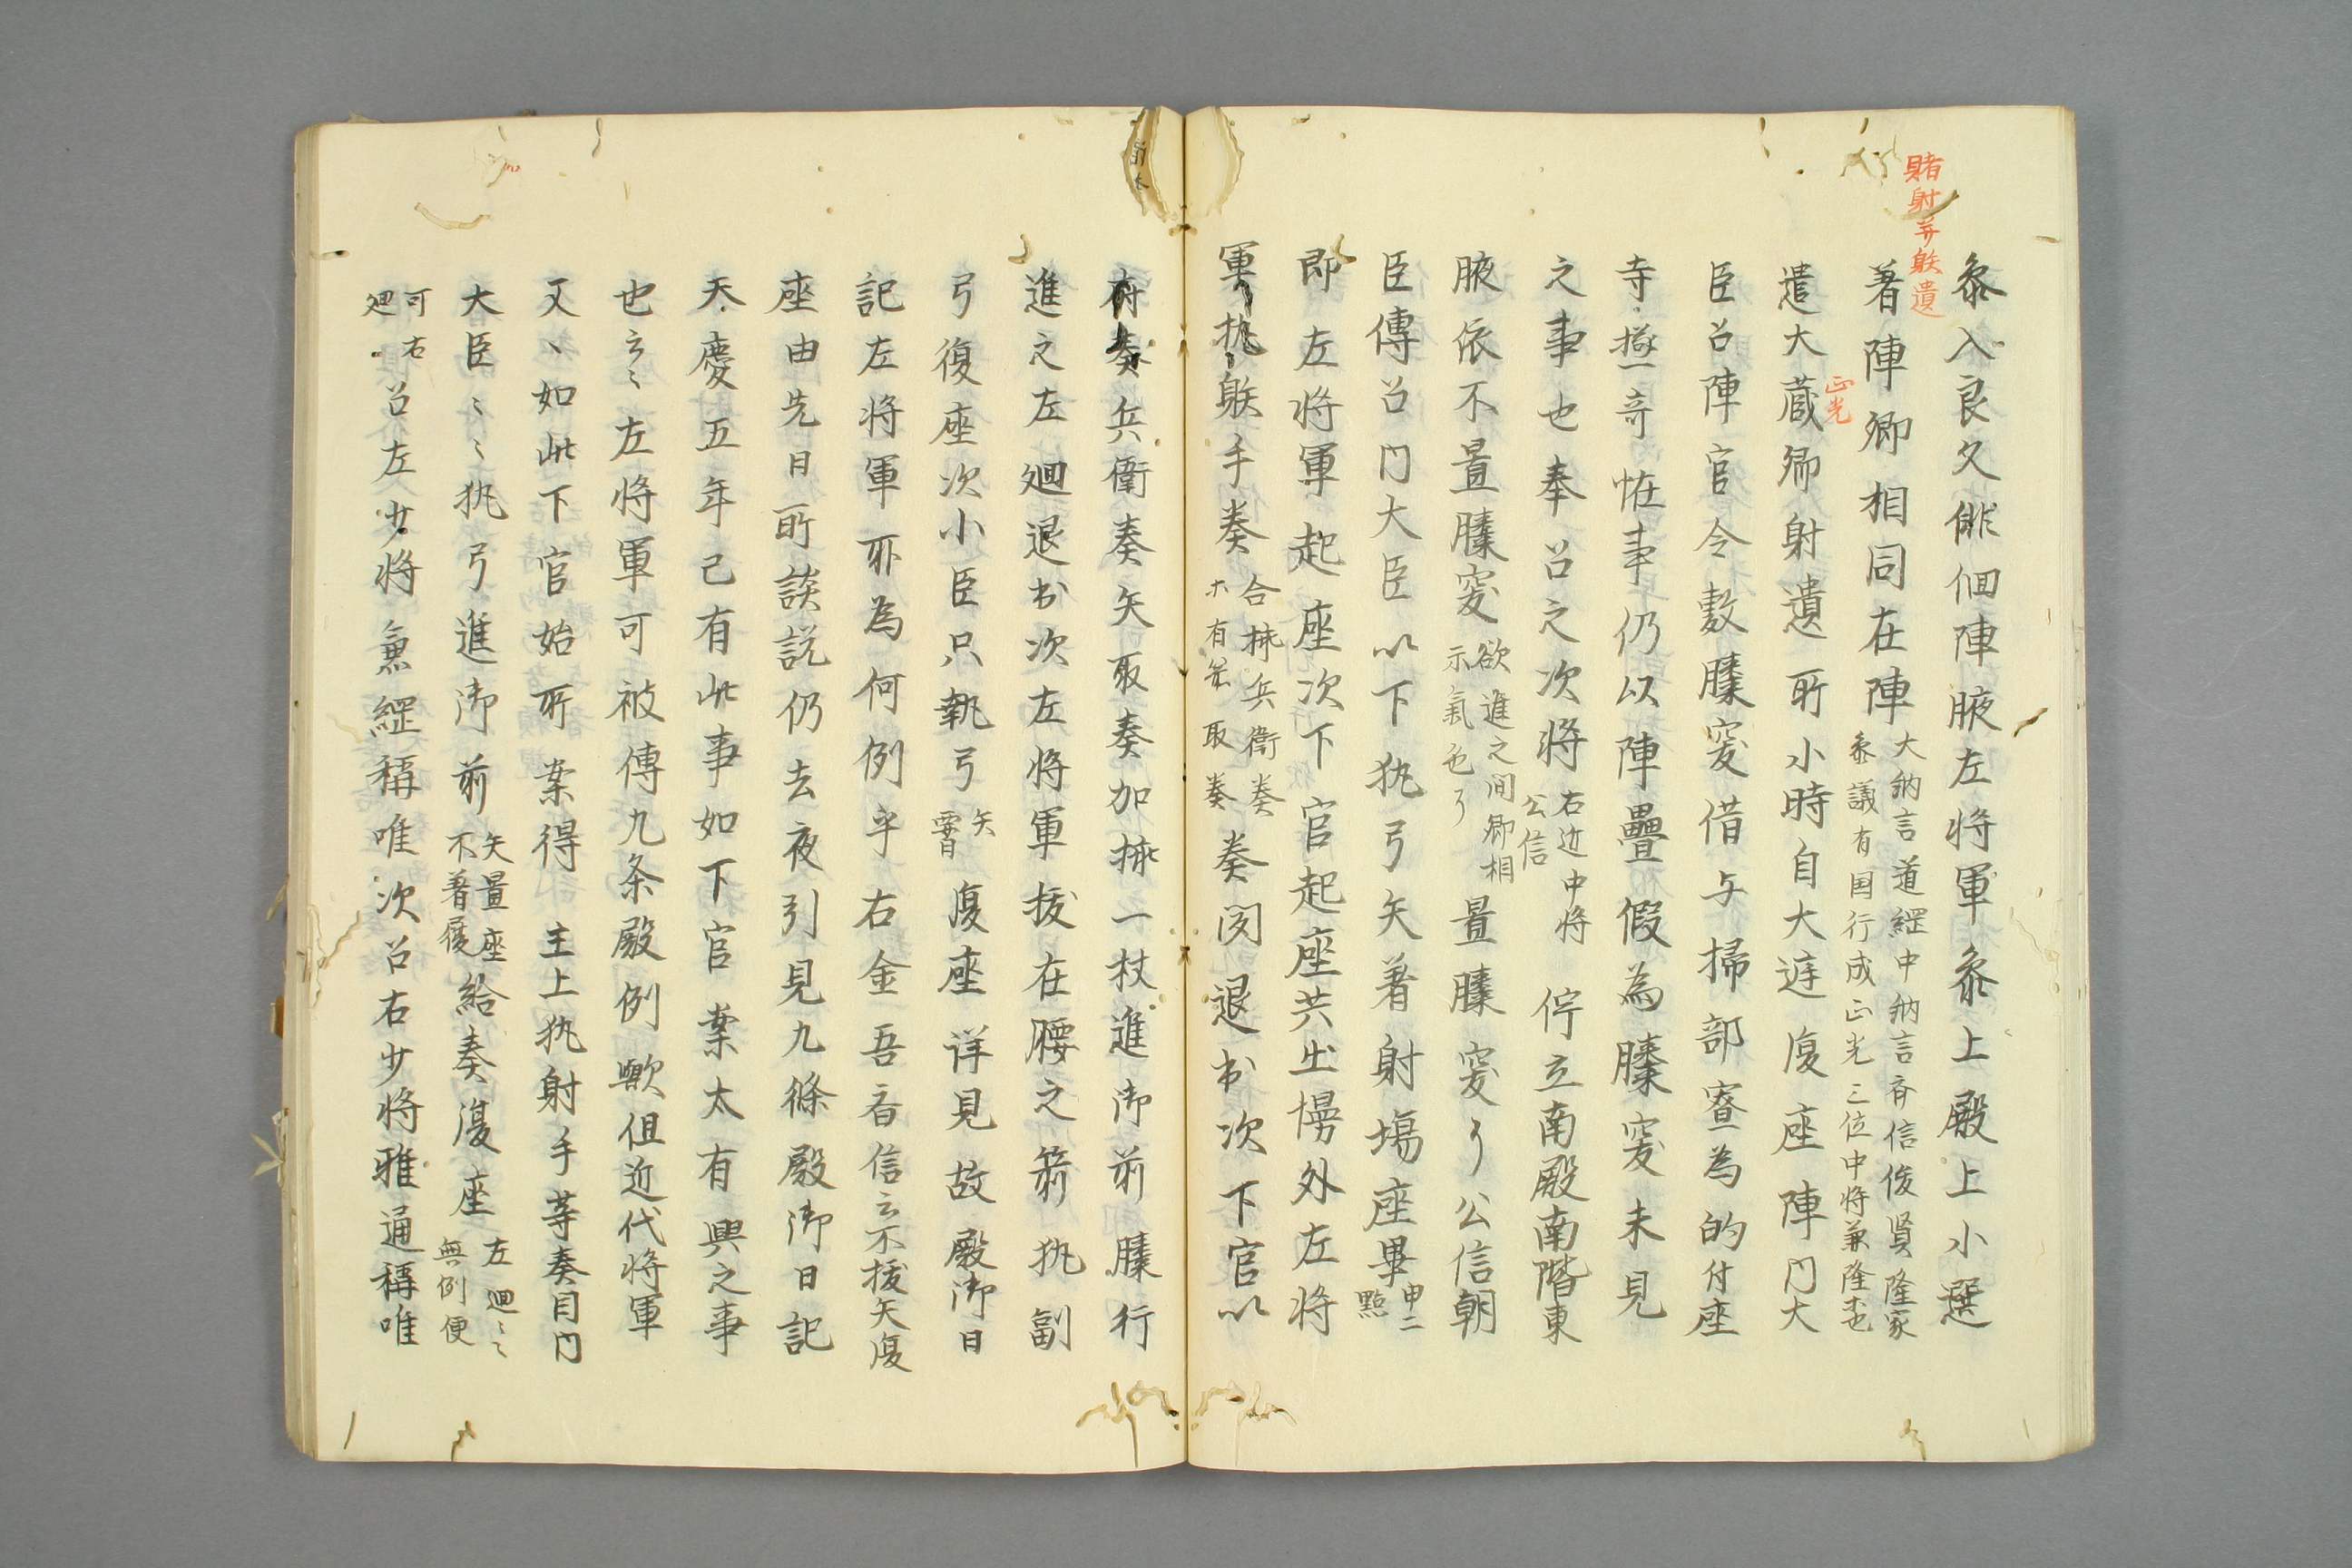 賭射并射遺
参入良久俳佪陣腋左将軍参上殿上小選
著陣卿相同在陣大納言道綱中納言斉信俊賢隆家
参議有国行成正光三位中将兼隆等也
遣大蔵卿射遺所小時自大庭復座陣門大
正光
臣召陣官令敷膝突借与掃部寮為的付座
寺極奇恠事仍以陣疊假為膝突未見
之事也奉召之次将右近中将
公信
佇立南殿南階東
腋依不置膝突欲進之間卿相
示氣色了
置膝突了公信朝
臣傳召門大臣以下執弓矢著射場座畢申二
點
即左将軍起座次下官起座共出幔外左将
軍執射手奏合挿兵衛奏
取奏
奏閲退出次下官以
府奏兵衛奏矢取奏加挿一杖進御前膝行
進之左廻退出次左将軍抜在腰之箭執副
弓復座次小臣只執弓矢
復座詳見故殿御日
記左将軍所為何例乎右金吾斉信云不抜矢復
座由先日所談説仍去夜引見九條殿御日記
天慶五年已有此事如下官案太有興之事
也云々左将軍可被傳九条殿例歟但近代将軍
又、如此下官始所案得主上執射手等奏目門
大臣々々執弓進御前矢置座
不著履
給奏復座左廻々々
無例便
可右
廻
召左少将兼綱稱唯次召右少将雅通稱唯